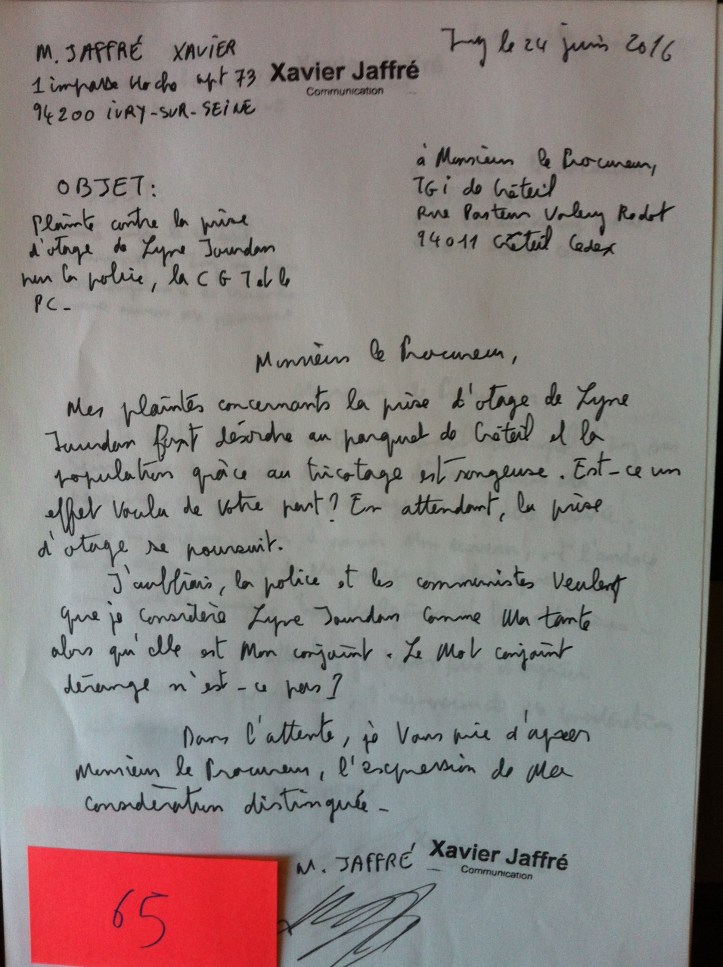 M. JAFFRÉ XAVIER
1 impasse Hoche apt 73
94200 IVRY-SUR-SEINE
Xavier Jaffré
Communication
le 24 juin 2016
à Monsieur le Procureur,
TGI de Créteil
Rue Pasteur Valery Radot
94011 Créteil Cedex
OBJET:
Plainte contre la prise
d'otage de Lyne Jourdan
par la police, la CGT et le
PC-
Monsieur le Procureur,
Mes plaintes concernants la prise d'otage de Lyne
Jourdan désordre au parquet de Créteil et la
population grâce au tricotage est songeuse. Est-ce un
effet voulu de votre part? En attendant, la prise
d'otage se poursuit.
J'oubliais, la police et les communistes veulent
que je considère Lyne Jourdan comme ma tante
alors qu'elle est mon conjoint. Le mot conjoint
dérange n'est-ce pas?
Dans l'attente, je vous prie d'agréer
Monsieur le Procureur, l'expression de ma
considération distinguée-
M. JAFFRÉ
Xavier Jaffré
Communication
65